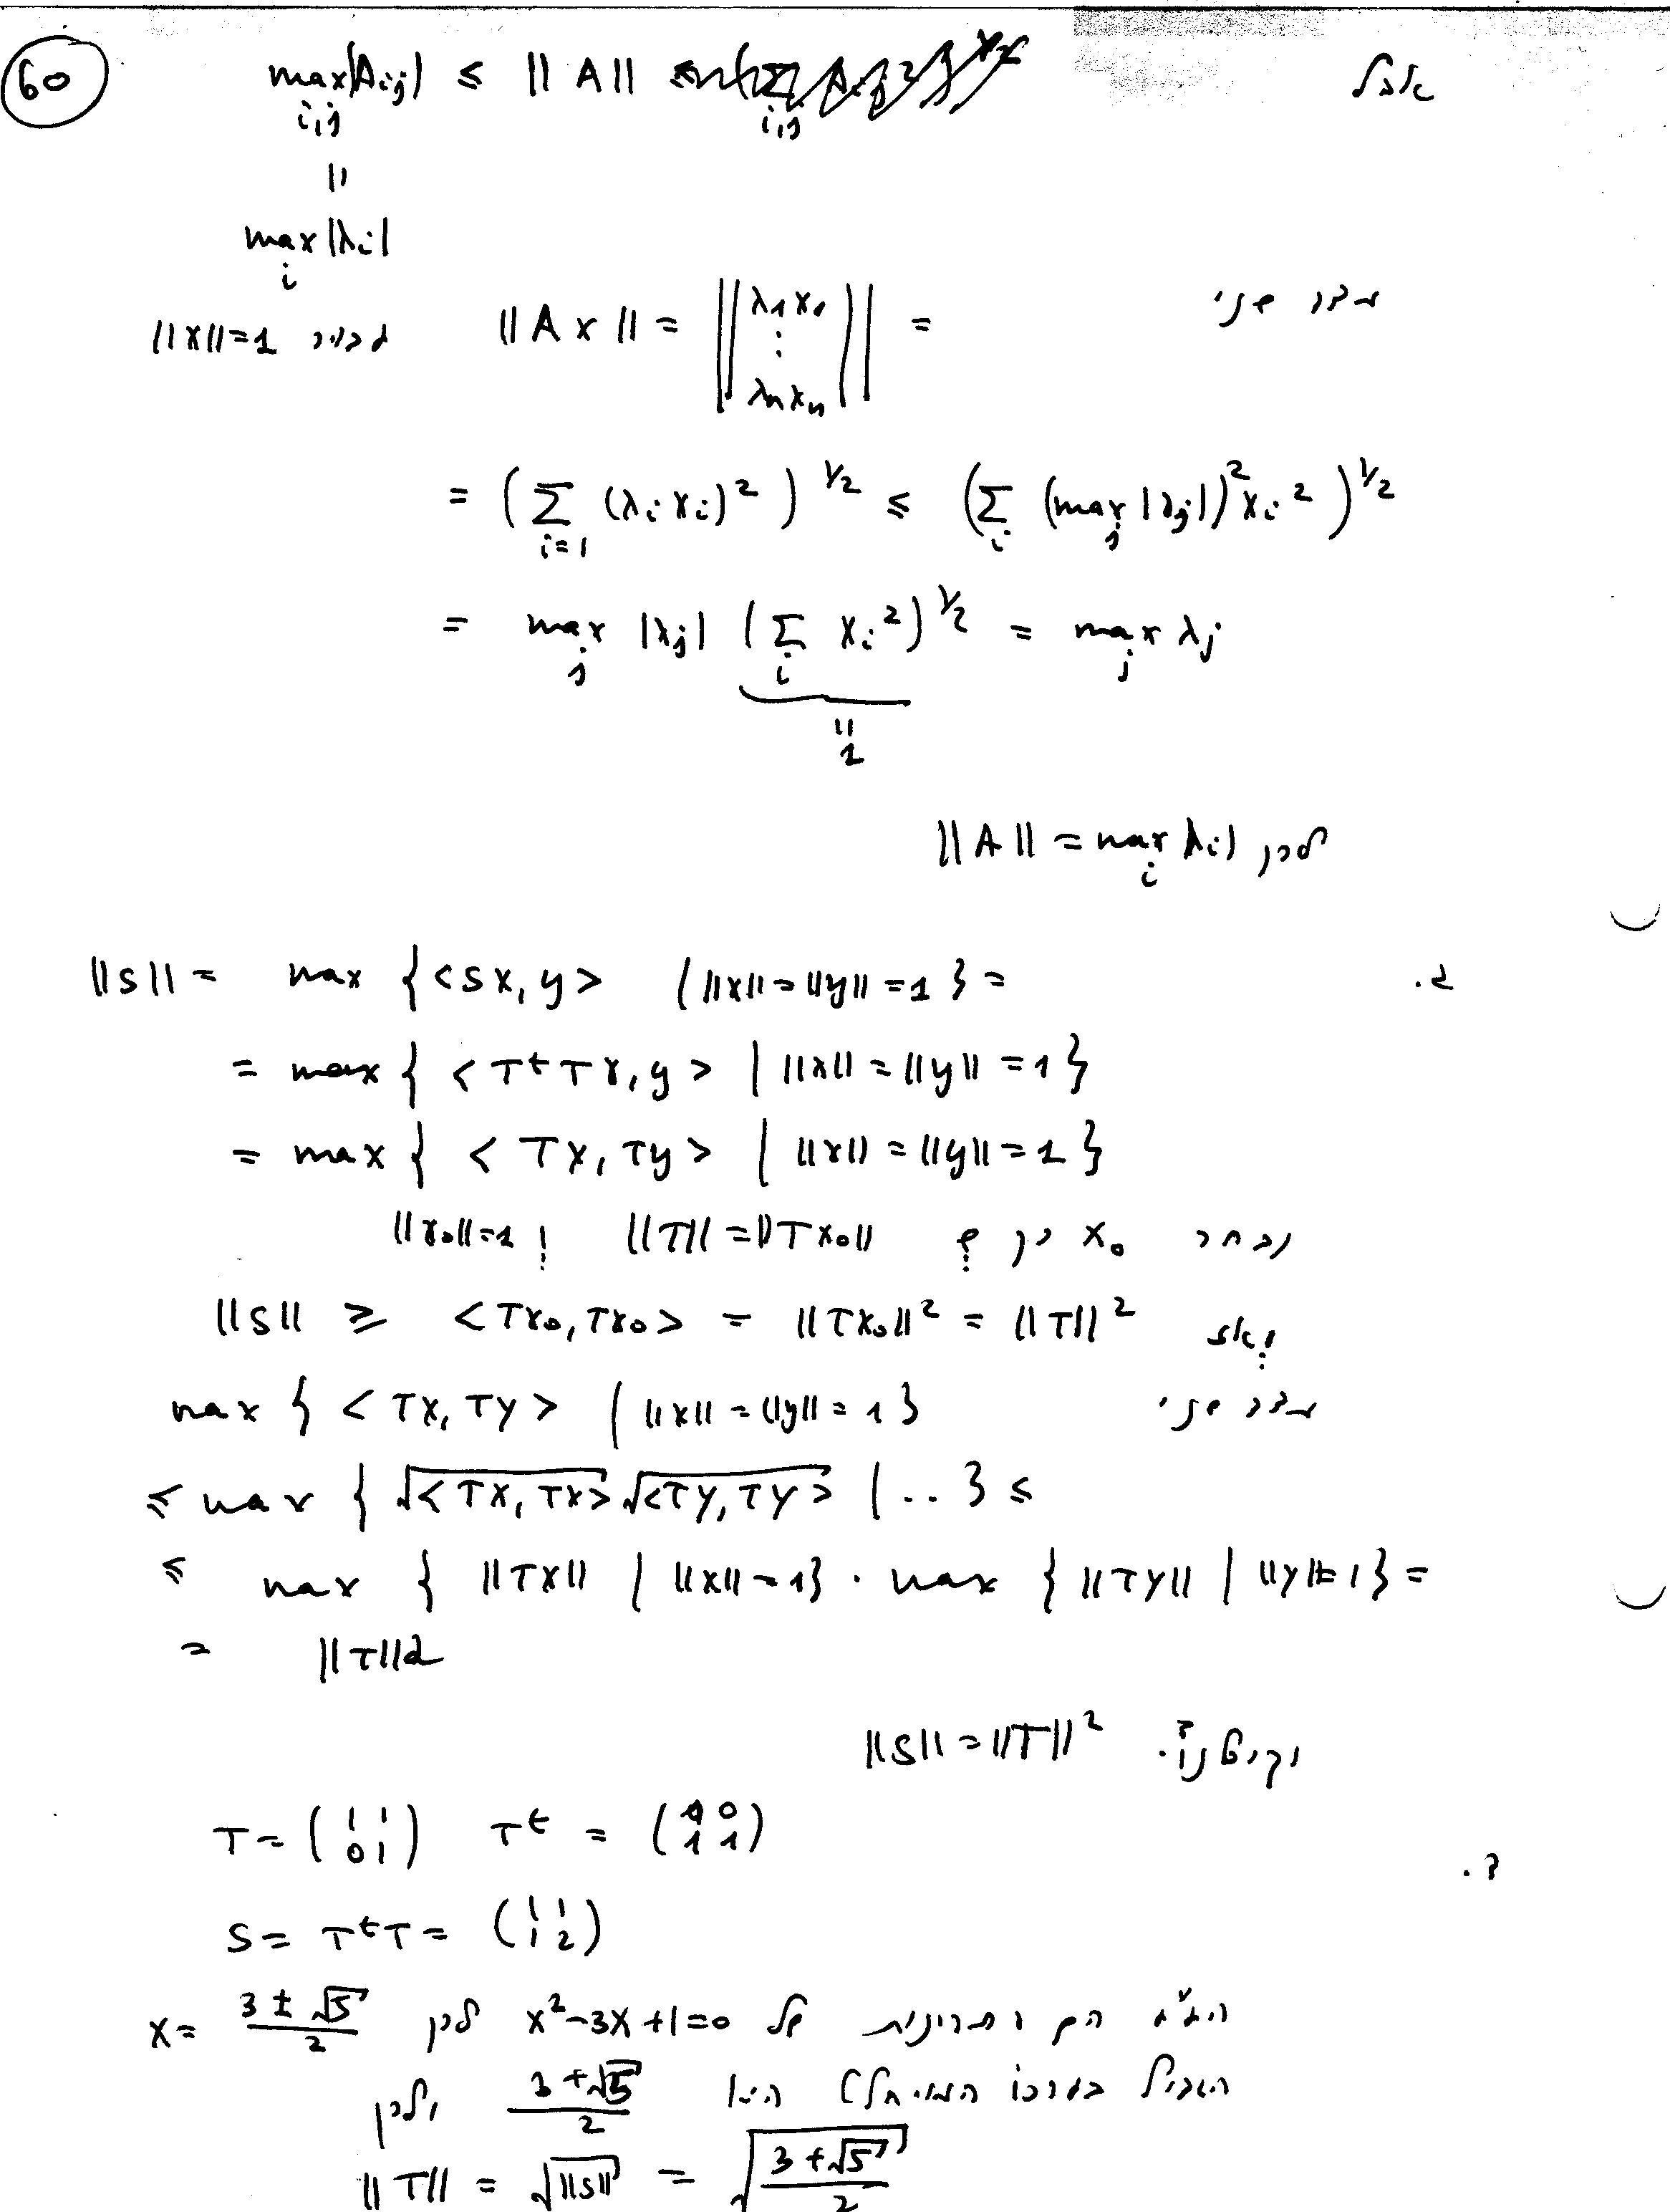 60
אבל max_{i,j} |A_{ij}| ≤ ||A||
||
max_i |λ_i|
מצד שני ||Ax|| = ||(λ_1 x_1 ⋮ λ_n x_n)|| = עבור ||x||=1
= (Σ_{i=1} (λ_i x_i)^2)^{1/2} ≤ (Σ_i (max_j |λ_j|)^2 x_i^2)^{1/2}
= max_j |λ_j| (Σ_i x_i^2)^{1/2} = max_j λ_j
||
1
לכן ||A|| = max_i |λ_i|
||S|| = max {<Sx,y> | ||x||=||y||=1} =
= max {<T^t Tx,y> | ||x||=||y||=1}
= max {<Tx,Ty> | ||x||=||y||=1}
נבחר x_0 כך ש: ||T||=||Tx_0|| ! ||x_0||=1
ואז: ||S|| ≥ <Tx_0,Tx_0> = ||Tx_0||^2 = ||T||^2
מצד שני max {<Tx,Ty> | ||x||=||y||=1}
≤ max {√<Tx,Tx> √<Ty,Ty> | ..} ≤
≤ max {||Tx|| | ||x||=1} · max {||Ty|| | ||y||=1} =
= ||T||2
וקיבלנו: ||S||=||T||^2
T = (1 1 0 1) T^t = (1 0 1 1)
ד.
S = T^t T = (1 1 1 2)
הע"ע הם פתרונות של x^2-3x+1=0 לכן x = (3±√5)/2
הגדול בערכו המוחלט הינו (3+√5)/2 ולכן
||T|| = √||S|| = √((3+√5)/2)